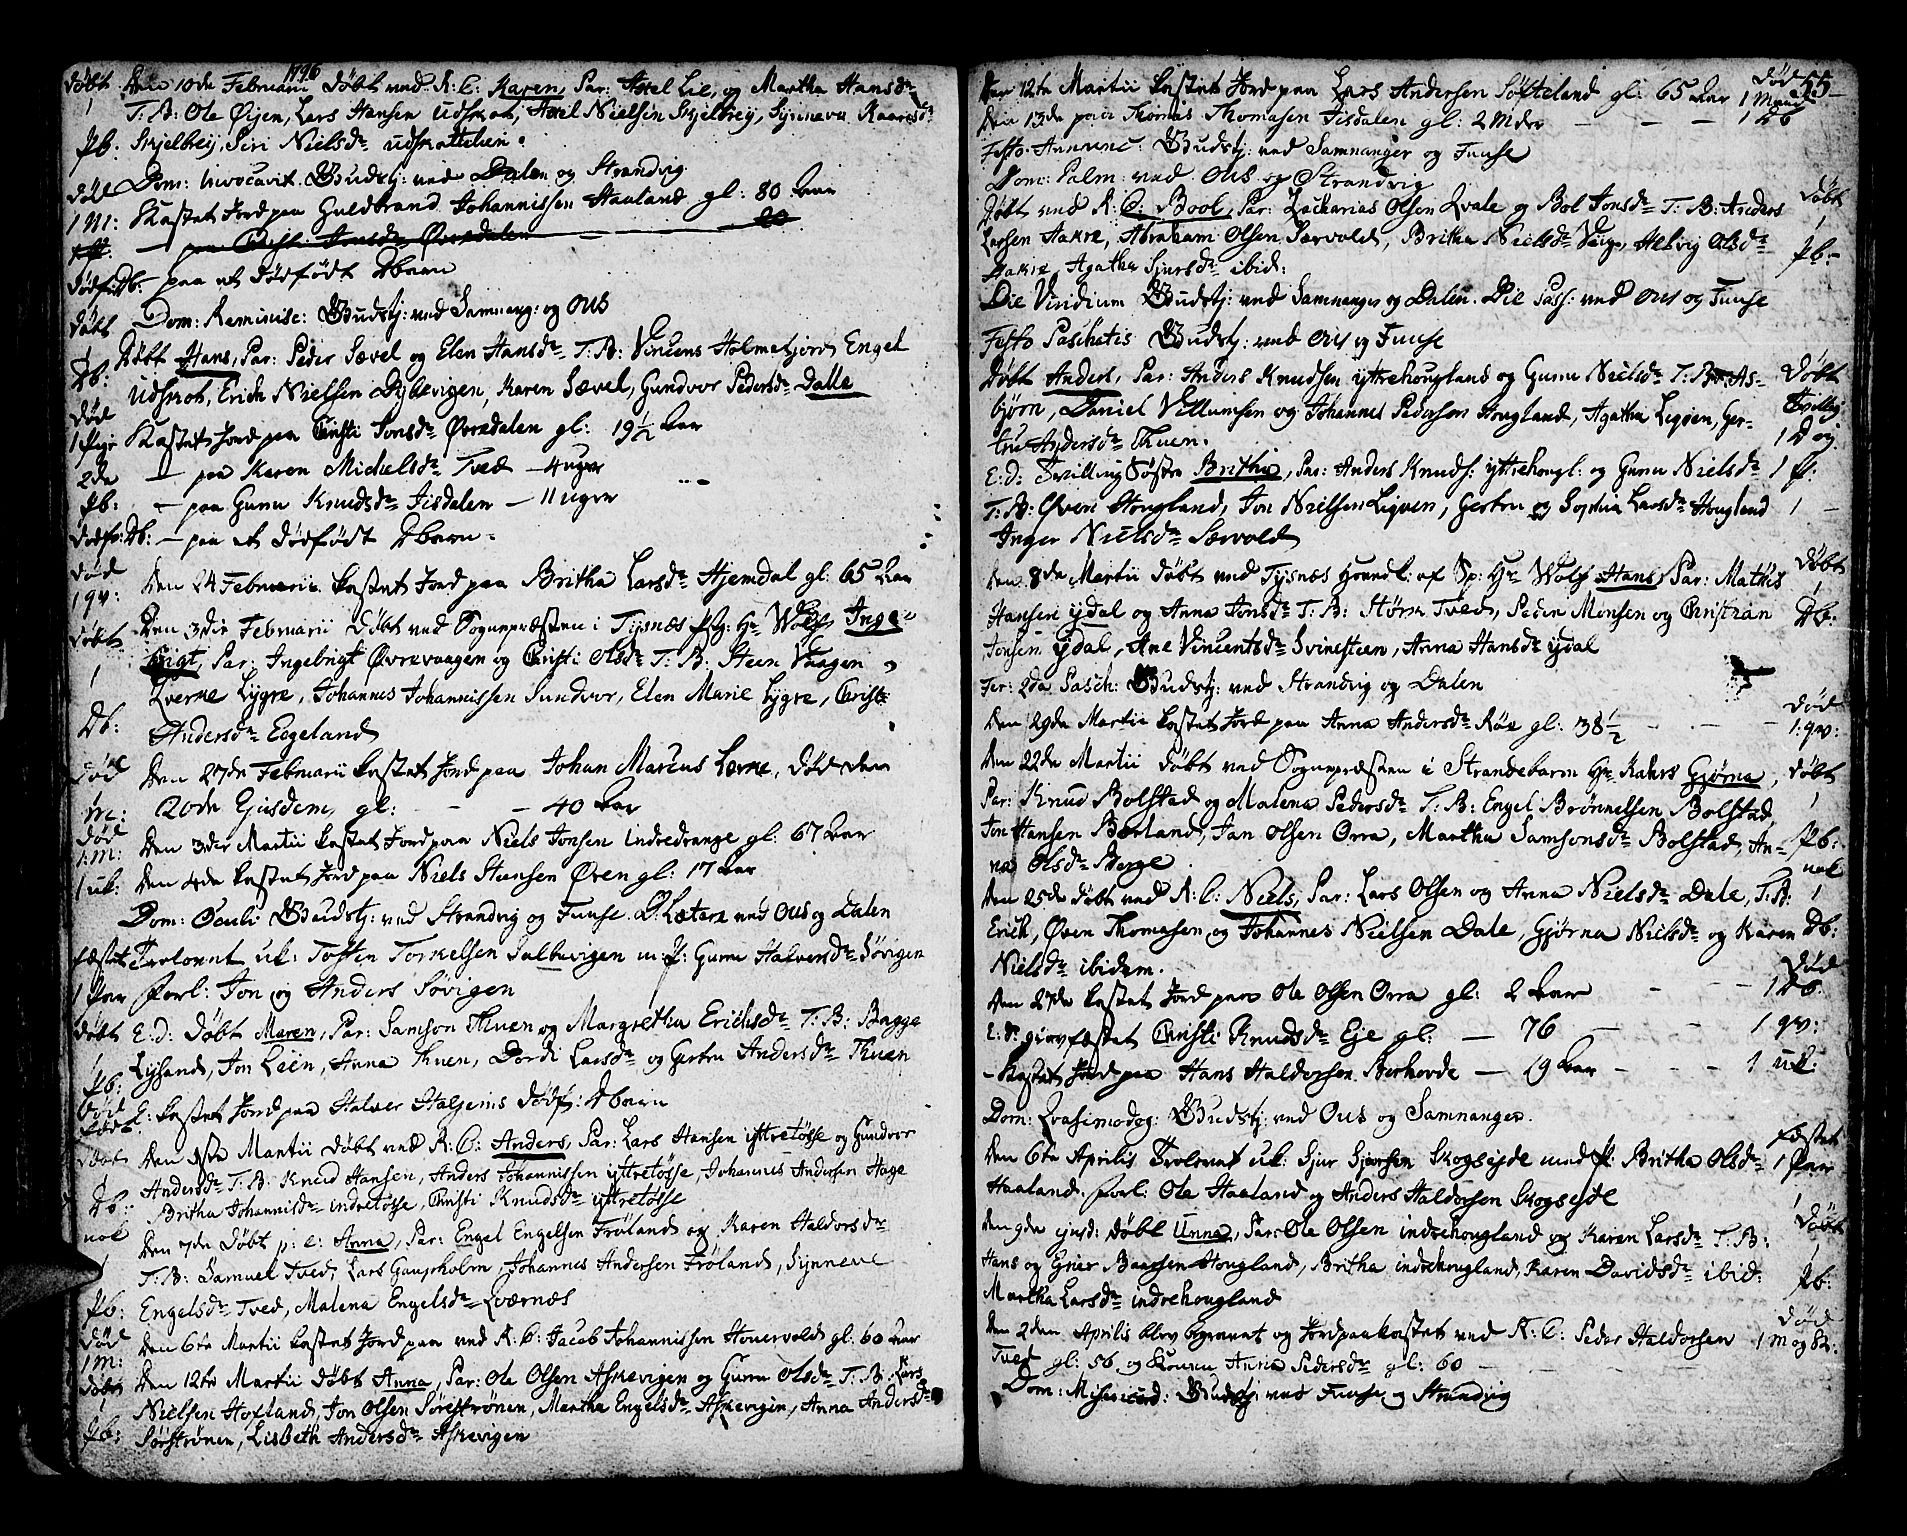 1796
døbt Den 10de Februarii døbt ved R: C: Karen, Par: Axel Lie, og Martha Hansdr
1 T: B: Ole Øijen, Lars Hansen Udskot, Axel Nielsen Skjelbreij, Synneva
Pb: Skjelbreij, Siri Nielsdr udskottelien.
Dom: Invocavit Gudstj: ved Dalen og Strandvig
død 1 M: Kastet Jord paa Guldbrand Johannissen Haaland gl: 80 Aar
— paa Christi Jonsdr Øvredalen — 20
dødfø: Db: — paa et dødfødt Dbarn
Dom: Reminisc: Gudstj: ved Samnang: og Ous
døbt 1 Døbt Hans, Par: Peder Sævel og Elen Hansdr T: B: Vincens Holmefjord Engel
Db: Udskot, Erich Nielsen Dyblevigen, Karen Sævel, Gundvor Pedersdr Dalle
død 1 Pige Kastet Jord paa Christi Jonsdr Øvredalen gl: 19½ Aar
2de — paa Karen Michelsdr Tved — 4 uger
Pb: — paa Guru Knudsdr Jisdalen — 11 uger
dødfø: Db: — paa et dødfødt Dbarn.
død 1 qv: Den 24 Februarii kastet Jord paa Britha Larsdr Hjemdal gl: 65 Aar
døbt Den 3die Februarii døbt ved Sognepræsten i Tysnæs Pstg: Hr Wolf Inge-
1 brigt, Par: Ingebrigt Øvrevaagen og Christi Olsdr T: B: Steen Vaagen
Qverne Lygre, Johannes Johannissen Sundvor, Elen Marie Lygre, Christi
Db: Andersdr Eegeland
død Den 27de Februarii kastet Jord paa Johan Marcus Lerne, død den
1 M: 20de Ejusdem, gl: — — 40 Aar
død 1: M: Den 3die Martii kastet Jord paa Niels Jonsen Indredrange gl: 67 Aar
1 uk: Den 4de kastet Jord paa Niels Steensen Øren gl: 17 Aar
Dom: Oculi Gudstj: ved Strandvig og Fuuse. D: Lætare ved Ous og Dalen
fæstet Trolovet uk: Tosten Torkelsen Salbuvigen m: P: Guru Halversdr Søvigen
1 Par Forl: Jon og Anders Søvigen
døbt E: d: Døbt Maren, Par: Samson Thuen og Margretha Erichsdr T: B: Bagge
1 Lysand, Jon Leen, Anna Thuen, Dordi Larsdr og Gertru Andersdr Thuen
Pb:
død født E: kastet Jord paa Halver Haljems dødf: Dbarn
døbt Den 1ste Martii døbt ved R: C: Anders, Par: Lars Hansen ijttretøsse og Gundvor
1 Andersdr T: B: Knud Hansen, Anders Johannissen ijttretøsse, Johannes Andersen Hage
Db: Britha Johannisdr indretøsse, Christi Knudsdr ijttretøsse
nok Den 7de døbt p: e: Anna, Par: Engel Engelsen Frøland og Karen Haldorsdr
1 T: B: Samuel Tved, Lars Gaupholm, Johannes Andersen Frøland, Synneve
Pb: Engelsdr Tved, Malena Engelsdr Qværnæs
død 1 M: Den 6te Martii kastet Jord paa ved R: C: Jacob Johannissen Houervold gl: 60 Aar
døbt Den 12te Martii døbt Anna, Par: Ole Olsen Askevigen og Guru Olsdr T: B: Lars
1 Nielsen Hofland, Jon Olsen Sørestrønen, Martha Engelsdr Askevigen, Anna Andersdr
Pb: Sørstrønen, Lisbeth Andersdr Askevigen
55
Den 12te Martii kastet Jord paa Lars Andersen Søfteland gl: 65 Aar død 1 Mand
Den 13de paa Thomas Thomasen Jisdalen gl: 2 Mdr — — 1 Db
Festo Annunc: Gudstj: ved Samnanger og Fuuse
Dom: Palm: ved Ous og Strandvig
Døbt ved R: C: Bool, Par: Zacharias Olsen Qvale og Bol Jonsdr T: B: Anders døbt
Larsen Aakre, Abraham Olsen Særvold, Britha Nielsdr Veige, Helvig Olsdr 1
Aakre Agatha Sjursdr ibid: Pb:
Die Viridium Gudstj: ved Samnanger og Dalen. Die Pass: ved Ous og Fuuse
Festo Paschatis Gudstj: ved Ous og Fuuse
Døbt Anders, Par: Anders Knudsen ijttrehougland og Guru Nielsdr T: B: As- Døbt
bjørn, Daniel Villumsen og Johannes Pedersen Hougland, Agatha Liqven, Ger- Tvilling
tru Andersdr Thuen. 1 D og
E: d: Tvilling Søster Britha, Par: Anders Knuds: ijttrehougl: og Guru Nielsdr 1 P:
T: B: Øven Hougland, Jon Nielsen Liqven, Gertru og Sophia Larsdr Hougland 1 —
Inger Nielsdr Særvold
Den 8de Martii døbt ved Tysnæs Hovedk: af Sp: Hr Wolf Hans, Par: Mathis Døbt
Hansen ijdal og Anna Jonsdr T: B: Størk Tved, Peder Monsen og Christian 1 Db:
Jonsen ijdal, Ane Vincentsdr Svinestien, Anna Hansdr ijdal
Fer: 2da Pasch: Gudstj: ved Strandvig og Dalen
Den 29de Martii kastet Jord paa Anna Andersdr Røe gl: 38½ — — død 1: qv:
Den 22de Martii døbt ved Sognepræsten i Strandebarm Hr Kahrs Gjørna, døbt
Par: Knud Bolstad og Malena Pedersdr T: B: Engel Brønnelsen Bolstad, 1
Jon Hansen Berland, Jan Olsen Orra, Martha Samsonsdr Bolstad, An- Pb:
na Olsdr Berge. nok
Den 25de døbt ved R: C: Niels, Par: Lars Olsen og Anna Nielsdr Dale, T: B: 1
Erich, Øven Thomasen og Johannes Nielsen Dale, Gjørna Nielsdr og Karen Db:
Nielsdr ibidem.
Den 27de kastet Jord paa Ole Olsen Orra gl: 2 Aar — — død 1 Db:
E: d: gravfæstet Christi Knudsdr Eje gl: — 76 — — 1 qv:
— kastet Jord paa Hans Haldorsen Berhovde — 19 Aar — — 1 uk:
Dom: Qvasimodog: Gudstj: ved Ous og Samnanger.
Den 6te Aprilis Trolovet uk: Sjur Sjursen Skogseijde med P: Britha Olsdr fæstet 1 Par
Haaland. Forl: Ole Haaland og Anders Haldorsen Skogseide
Den 9de ejusd: døbt Unna, Par: Ole Olsen indrehougland og Karen Larsdr T: B: 1 Døbt
Hans og Geier Baarsen Hougland, Britha indrehougland, Karen Davidsdr ibid: 1 Pb:
Martha Larsdr indrehougland
Den 2den Aprilis blev begravet og Jordpaakastet ved R: C: Peder Haldorsen død 1 M og 82:
Tved gl: 56, og Konen Anna Pedersdr gl: 60 —
Dom: Misericord: Gudstj: ved Fuuse og Strandvig